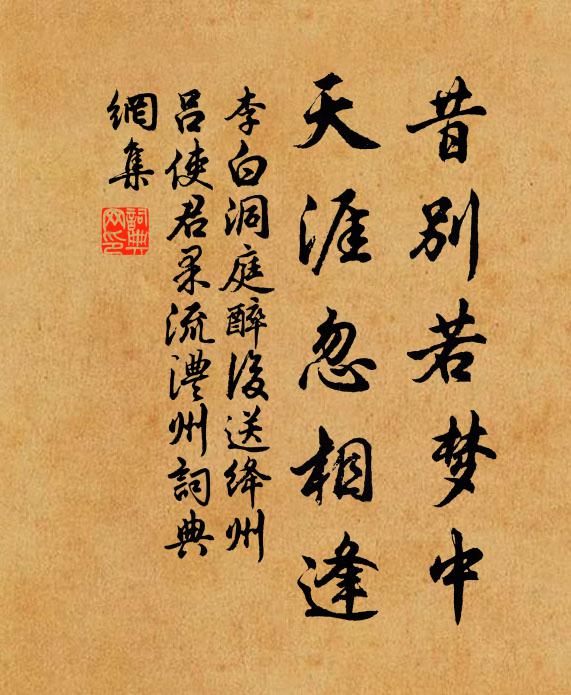 昔别若梦中
天涯忽相逢
李白洞庭醉後送绛州
吕使君杲流澧州詞典
網集
詞典网印